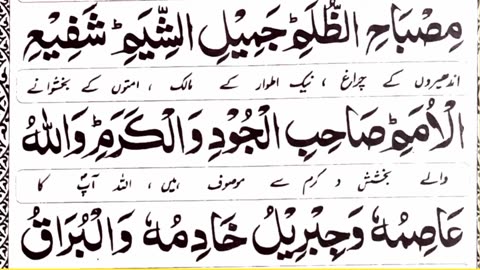 مِصْبَاحِ الظُّلَمِؕ جَمِيْلِ الشِّيَمِؕ شَفِيْعِ
اندھیروں کے چراغ ، نیک اطوار کے مالک ، امتوں کے بخشوانے
الْاُمَمِؕ صَاحِبِ الْجُوْدِ وَالْكَرَمِؕ وَاللهُ
والے بخشش و کرم سے موصوف ہیں ، اللہ آپؐ کا
عَاصِمُهٗ وَجِبْرِيْلُ خَادِمُهٗ وَالْبُرَاقُ